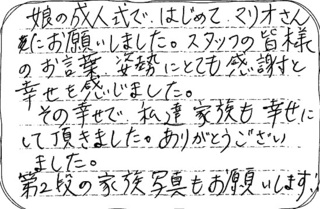 娘の成人式で、はじめて マリオさん
にお願いしました。スタッフの皆様
のお言葉、姿勢にとても感謝と
幸せを感じました。
その幸せで、私達 家族も 幸せに
して頂きました。ありがとうござい
ました。
第2段の家族写真もお願いします!